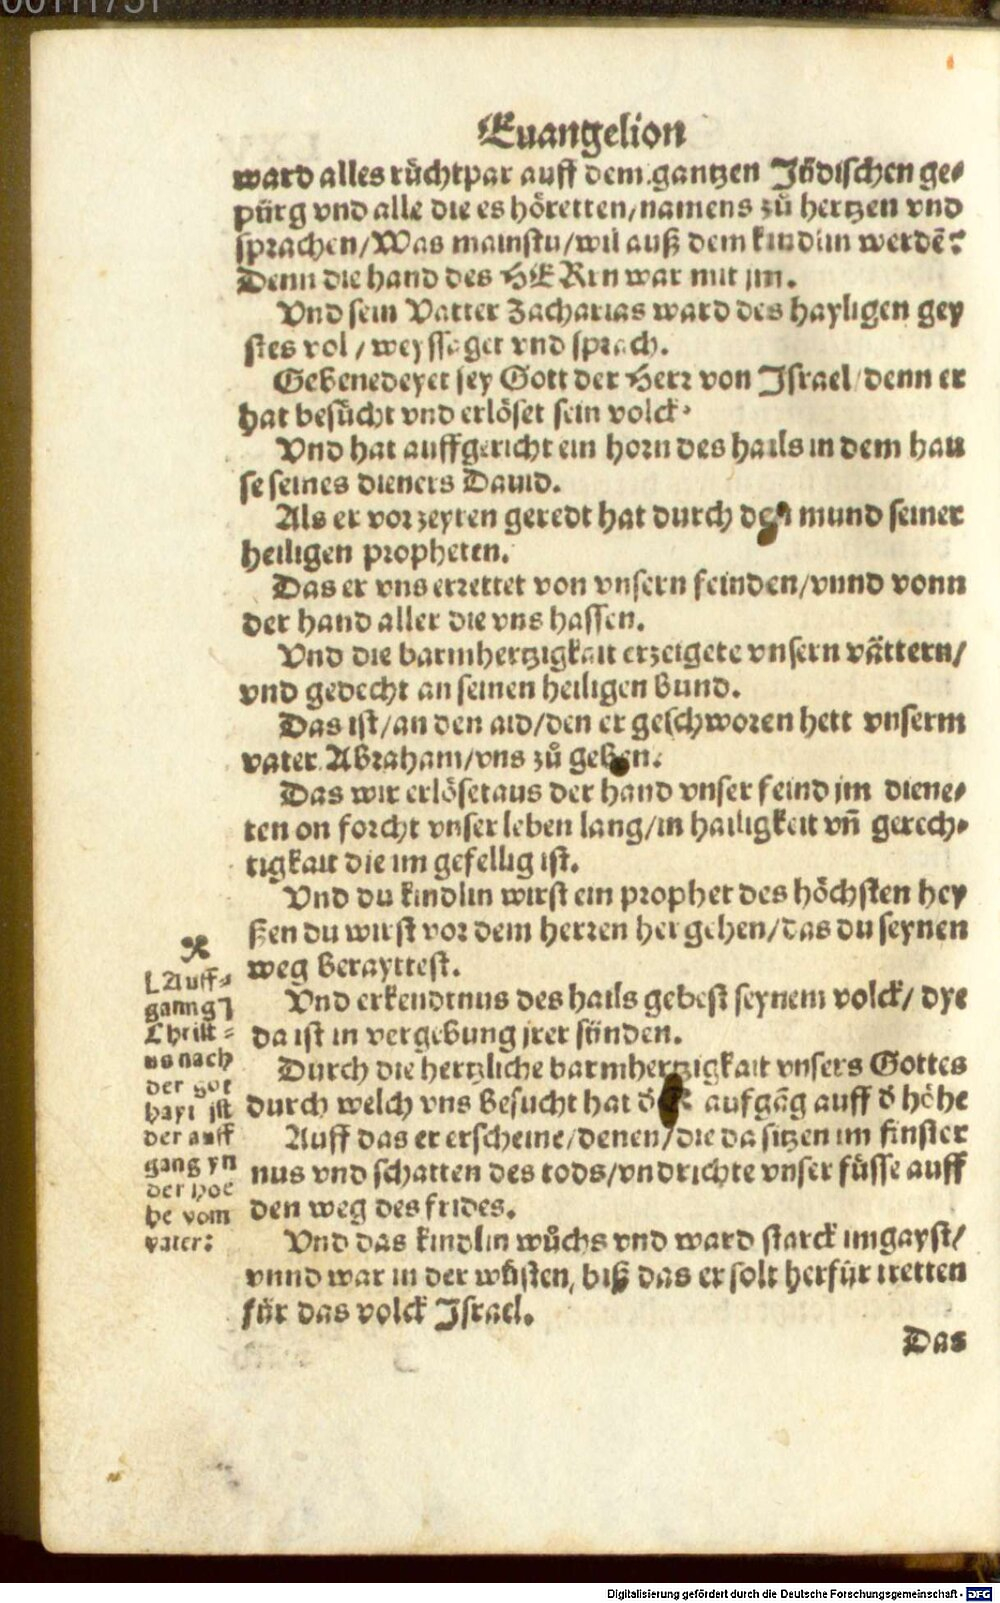 00111751
Euangelion
ward alles růchtpar auff dem gantzen Jödischen ge⸗
pürg vnd alle die es höretten/namens zů hertzen vnd
sprachen/Was mainstu/wil auß dem kindlin werdē?
Denn die hand des HERrn war mit jm.
Vnd sein Vatter Zacharias ward des hayligen gey
stes vol/weyssaget vnd sprach.
Gebenedeyet sey Gott der Herr von Israel/denn er
hat besůcht vnd erlöset sein volck.
Vnd hat auffgericht ein horn des hails in dem hau
se seines dieners Dauid.
Als er vorzeyten geredt hat durch den mund seiner
heiligen propheten.
Das er vns errettet von vnsern feinden/vnnd vonn
der hand aller die vns hassen.
Vnd die barmhertzigkait erzeigete vnsern vättern/
vnd gedecht an seinen heiligen bund.
Das ist/an den aid/den er geschworen hett vnserm
vater Abraham/vns zů geben.
Das wir erlöset aus der hand vnser feind jm diene⸗
ten on forcht vnser leben lang/in hailigkeit vñ gerech⸗
tigkait die im gefellig ist.
Vnd du kindlin wirst ein prophet des höchsten hey
ßen du wirst vor dem herren her gehen/das du seynen
weg berayttest.
Vnd erkendtnus des hails gebest seynem volck/ dye
da ist in vergebung jrer sünden.
Durch die hertzliche barmhertzigkait vnsers Gottes
durch welch vns besucht hat aufgāg auff d̄ höhe
Auff das er erscheine/denen/die da sitzen im finster
nus vnd schatten des tods/vnd richte vnser füsse auff
den weg des frides.
Vnd das kindlin wůchs vnd ward starck im gayst/
vnnd war in der wůsten, biß das er solt herfür tretten
für das volck Israel.
Das
[Auff⸗
ganng]
Christ⸗
us nach
der got
hayt ist
der auff
gang yn
der hoe
he vom
vater:
Digitalisierung gefördert durch die Deutsche Forschungsgemeinschaft - DFG